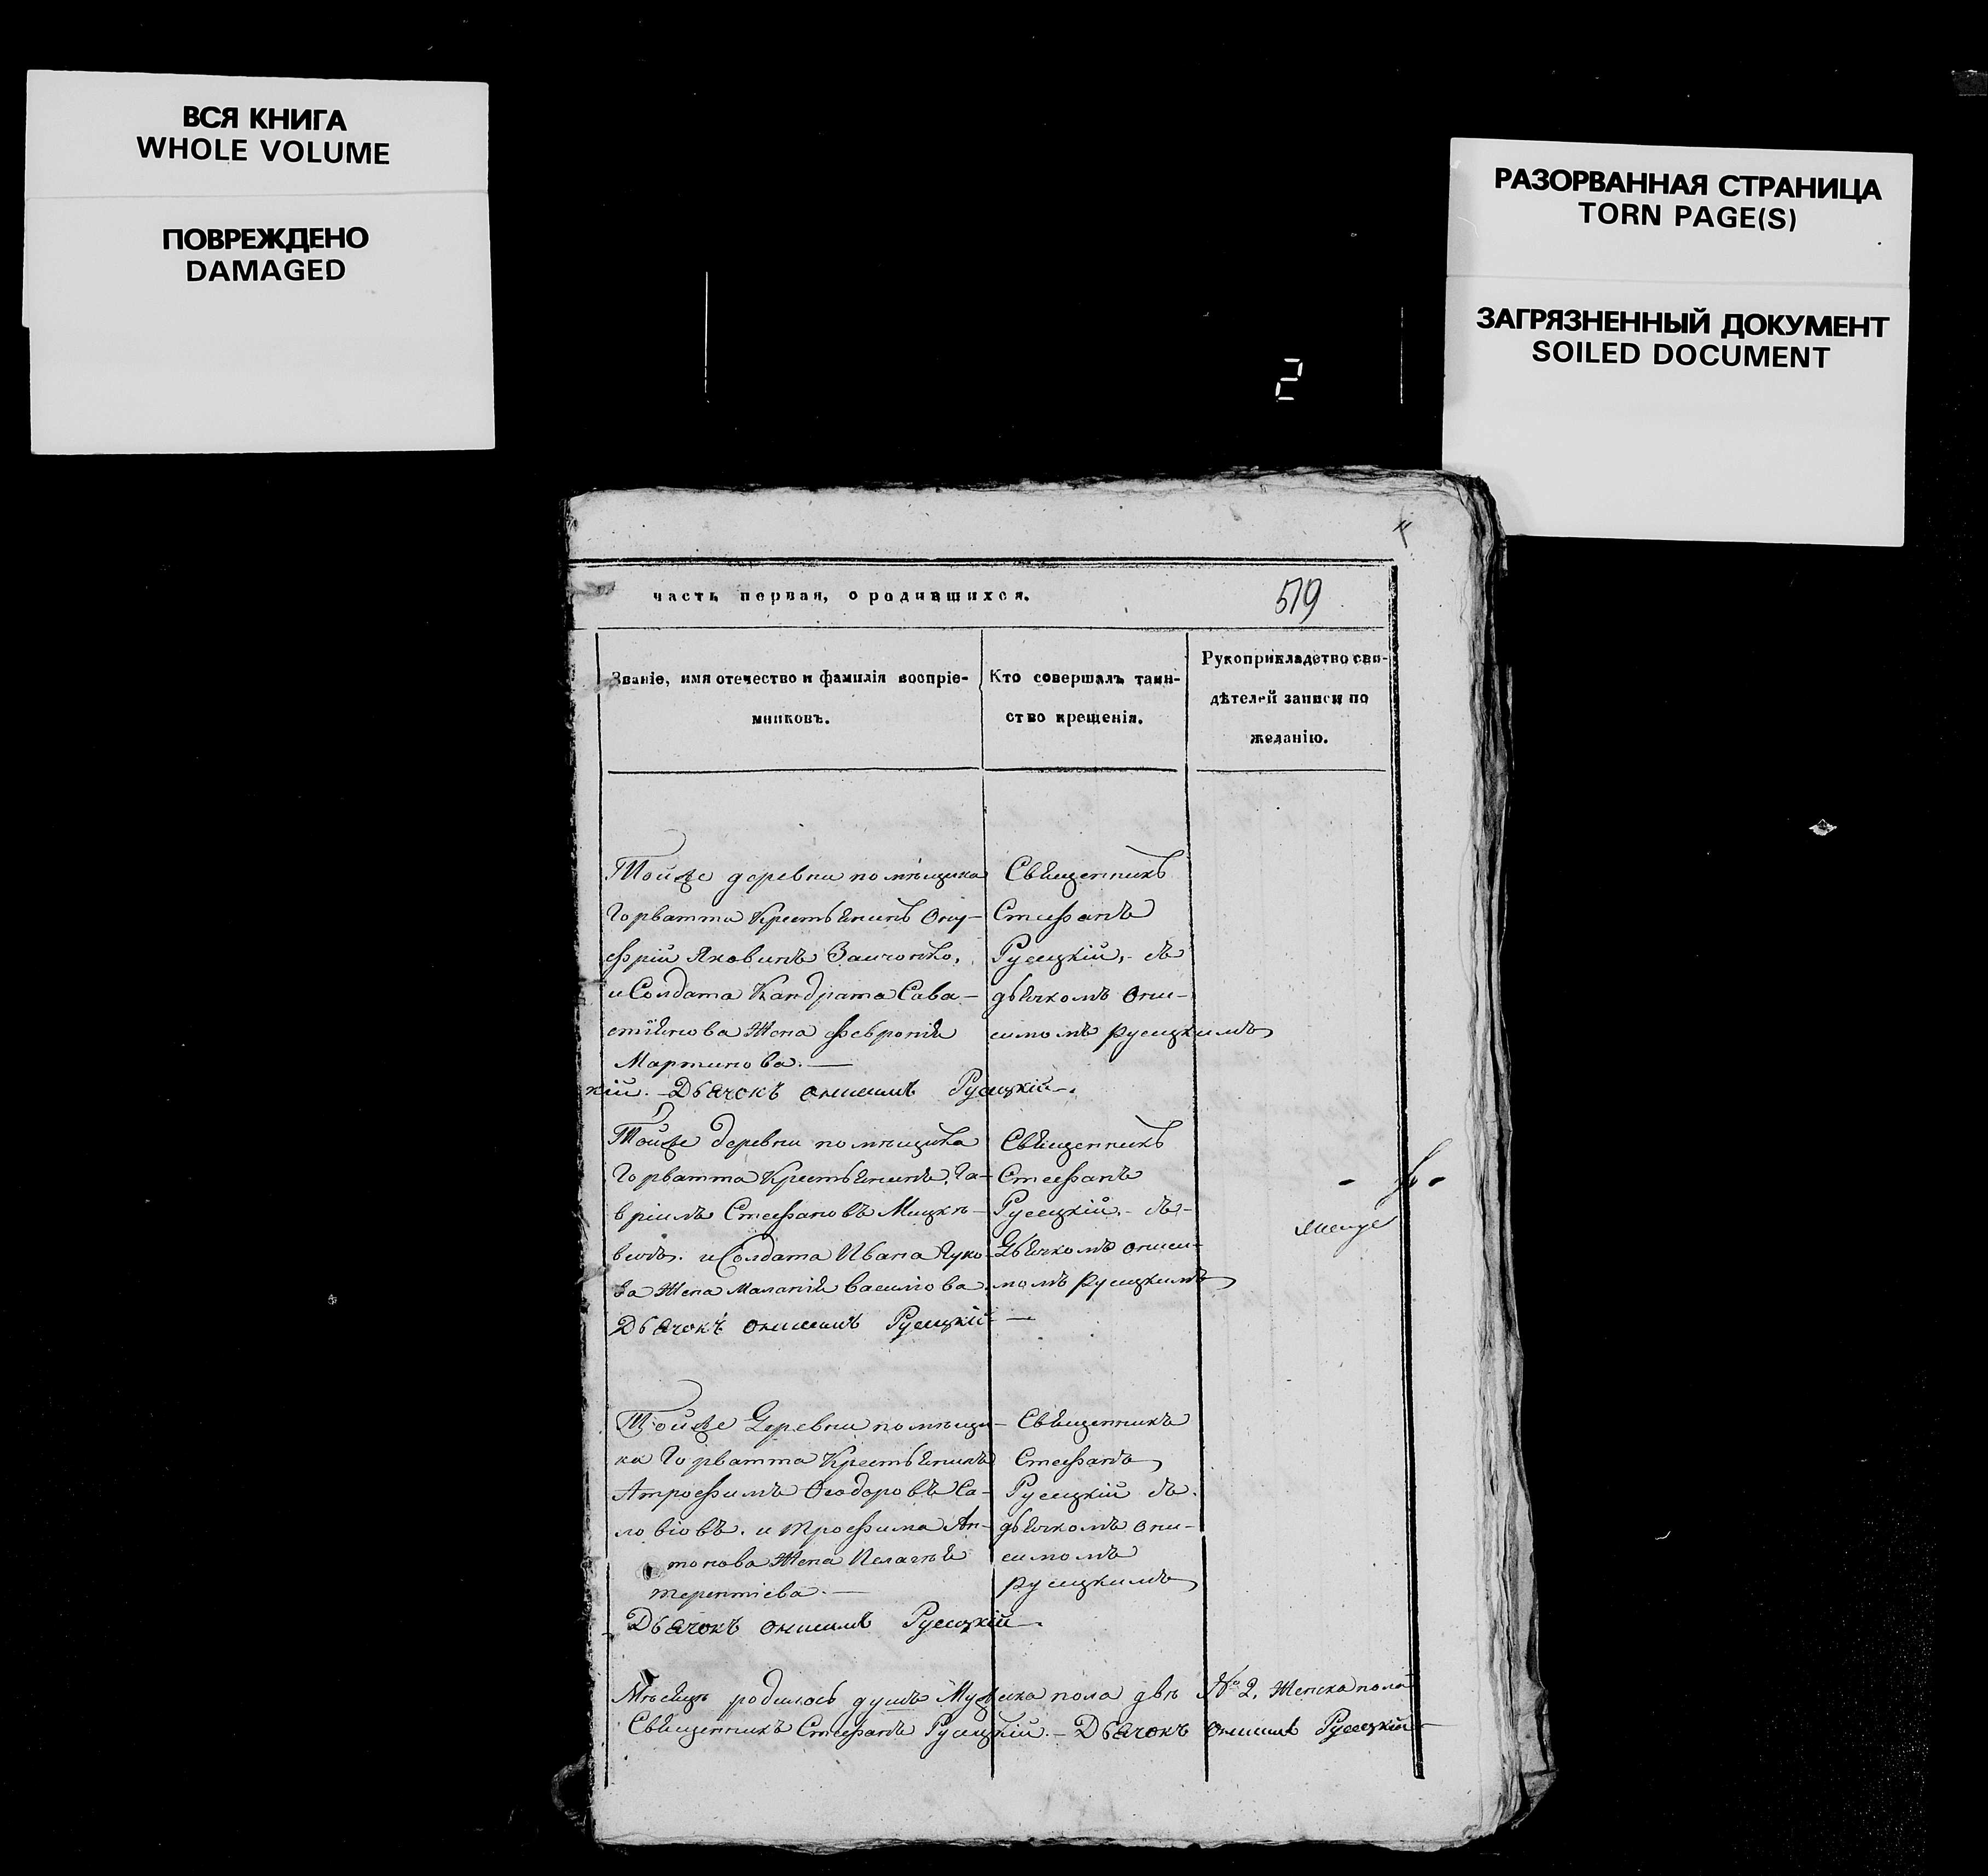 ВСЯ КНИГА
WHOLE VOLUME
ПОВРЕЖДЕНО
DAMAGED
РАЗОРВАННАЯ СТРАНИЦА
TORN PAGE(S)
ЗАГРЯЗНЕННЫЙ ДОКУМЕНТ
SOILED DOCUMENT
2
часть первая, о родившихся.
519
Званіе, имя отечество и фамилія воспріе-
мниковъ.
Кто совершалъ таин-
ство крещенія.
Рукоприкладство сви-
дѣтелей записи по
желанію.
Тойже деревни помѣщика
Горватта Крестьянинъ Ону-
фрій Яковинъ
и Солдата Кандрата Сава-
стіянова Жена Февронія
Мартинова. —
Священникъ
Стефанъ
Русецкій, съ
дьячкомъ Они-
симомъ Русецкимъ
кій. – Дьячокъ Онисимъ Русецкій –.
Тойже деревни помѣщика
Горватта Крестьянинъ Га-
вріилъ Стефановъ Мицке-
вичъ. и Солдата Ивана Чуко-
ва Жена Маланія Василіова.
Священникъ
Стефанъ
Русецкій. – съ –
Дьячкомъ Ониси-
момъ Русецкимъ
Дьячокъ Онисимъ Русецкій —
Тойже Деревни помѣщи-
ка Горватта Крестьянинъ
Атрофимъ Ѳеодоровъ Са-
ловіовъ. и Трофима Ан-
тонова Жена Пелагея
Терентіева. —
Священникъ
Стефанъ
Русецкій съ
дьячкомъ Они-
симомъ
Русецкимъ
Дьячокъ Онисимъ Русецкій –.
Мѣсяцѣ родилось душъ Мужска пола двѣ № 2. Женска пола
Священникъ Стефанъ Русецкій. – Дьячокъ Онисимъ Русецкій –